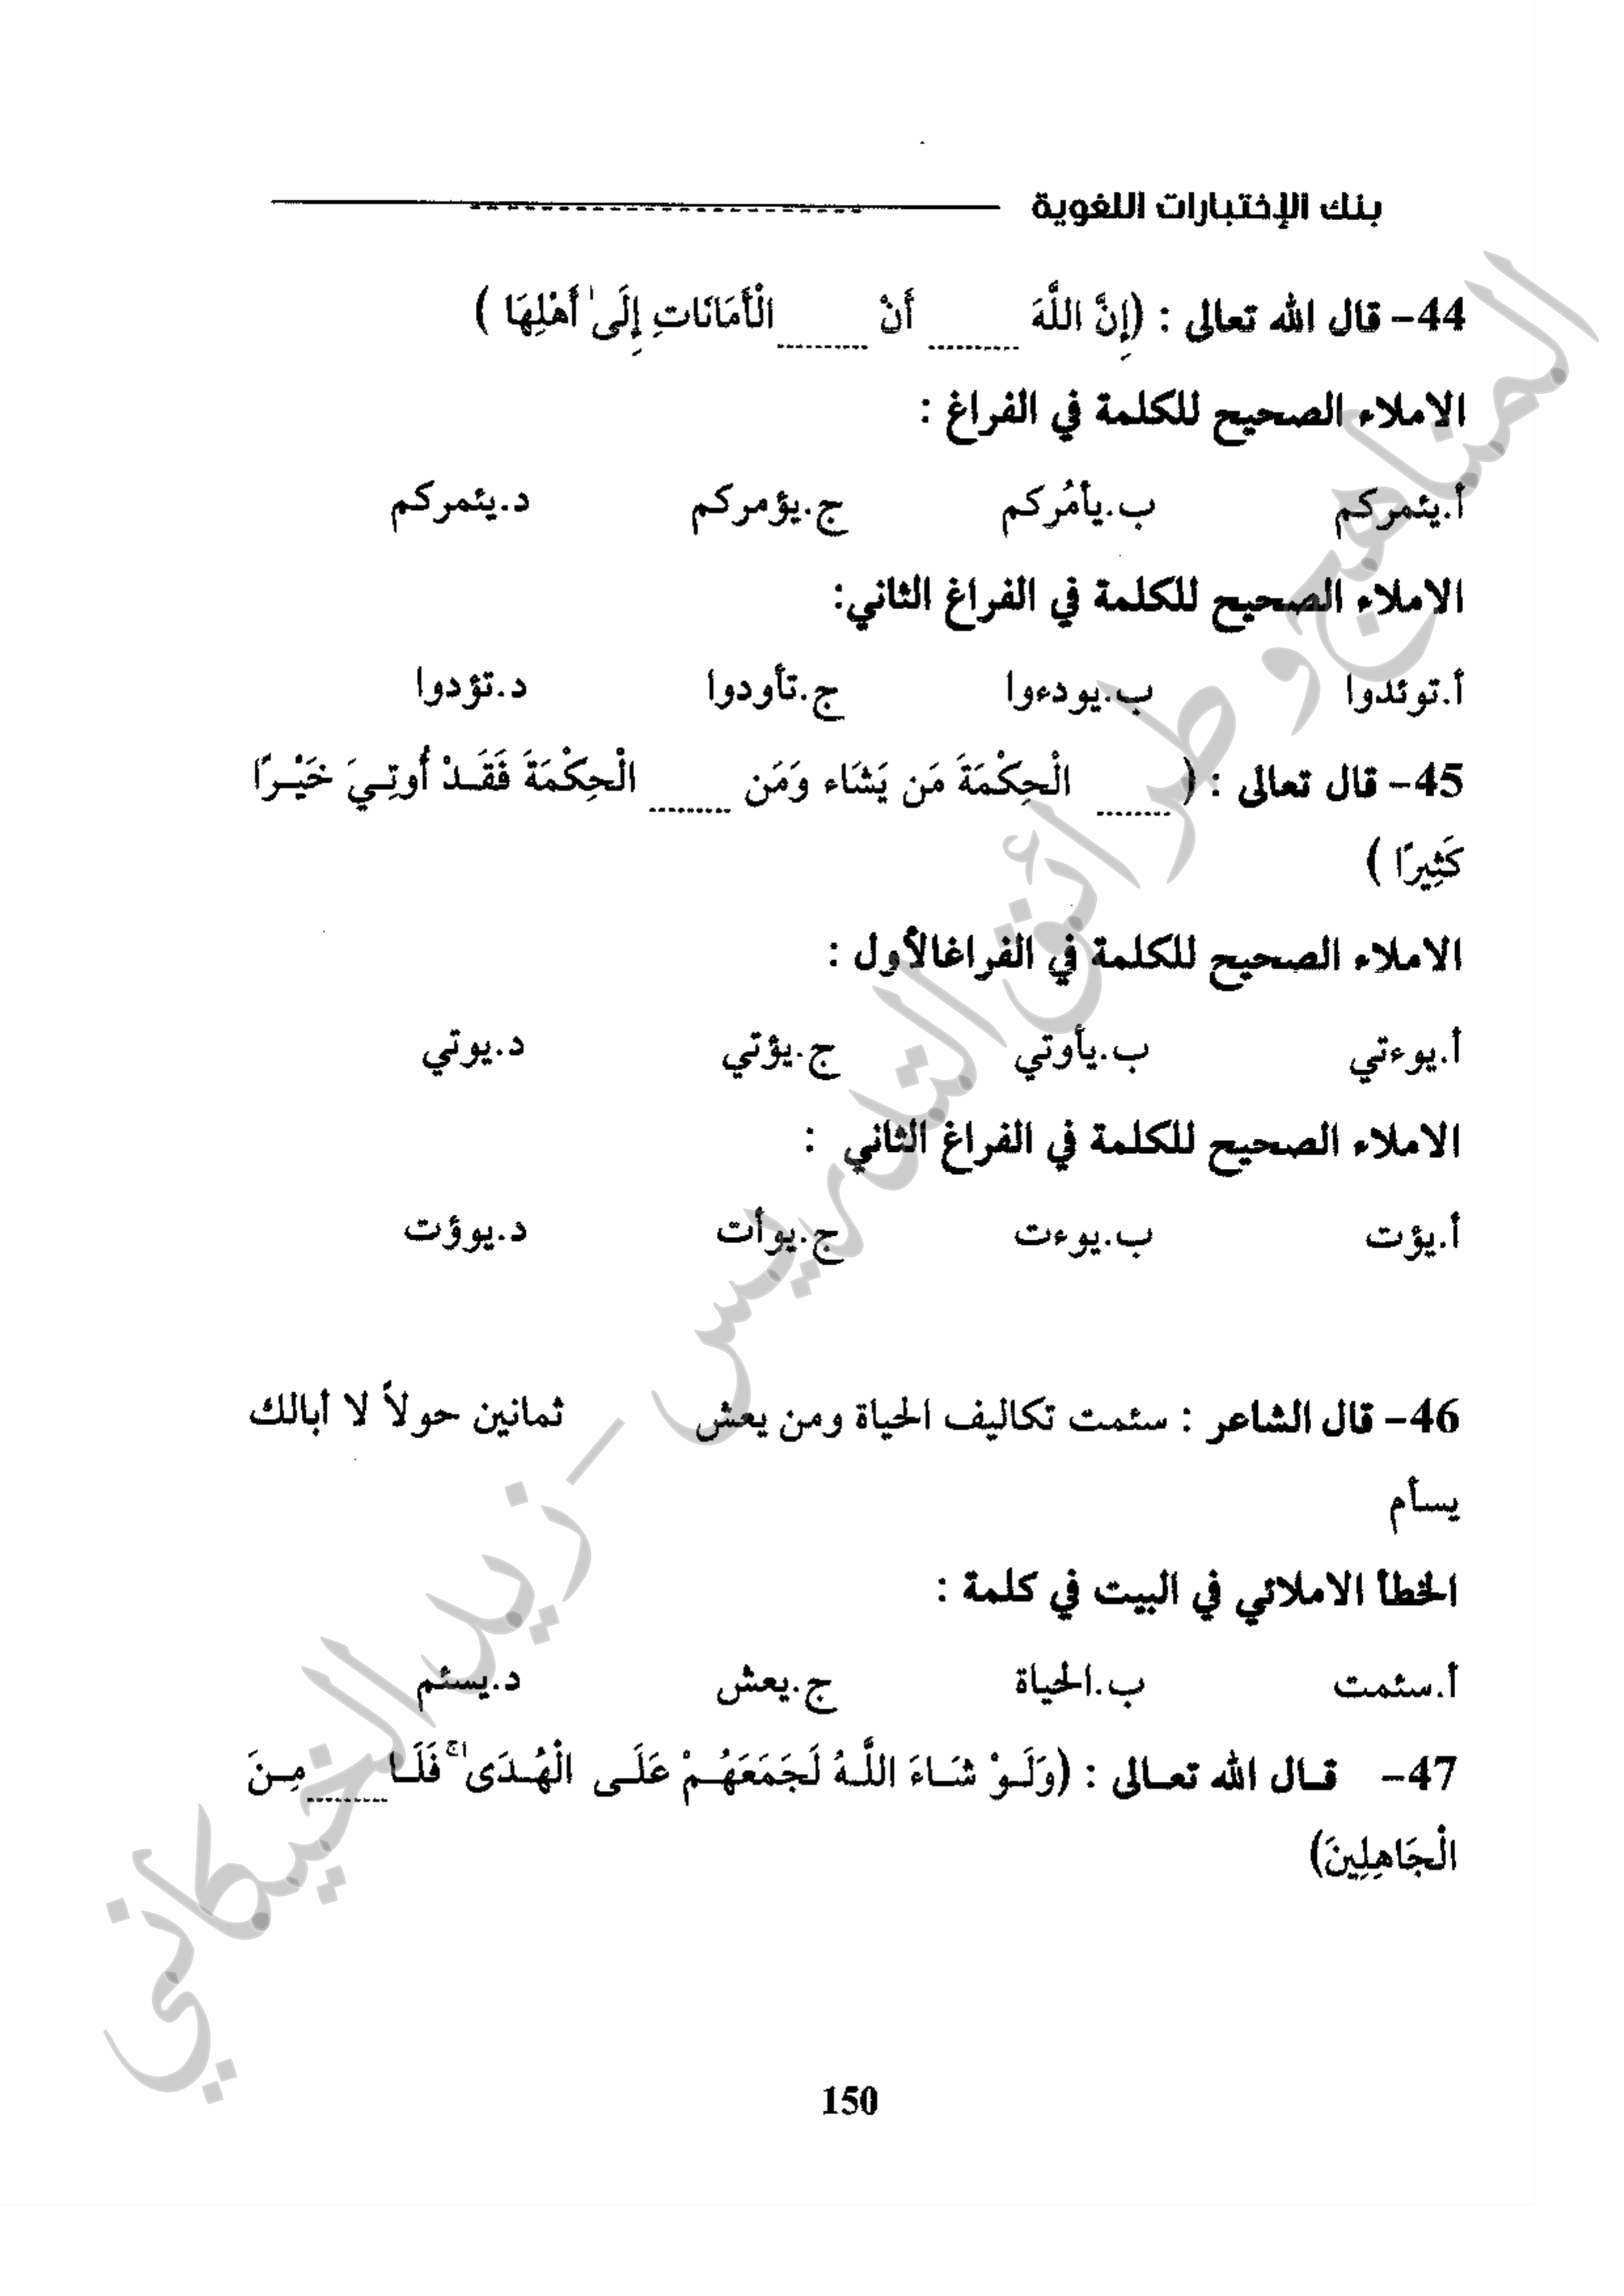 بنك الإختبارات اللغوية
44- قال الله تعالى : (إِنَّ اللَّهَ ......... أَنْ ......... الْأَمَانَاتِ إِلَىٰ أَهْلِهَا )
الاملاء الصحيح للكلمة في الفراغ :
أ.يئمركم ب.يأمُركم ج.يؤمركم د.يئمركم
الاملاء الصحيح للكلمة في الفراغ الثاني:
أ.توئدوا ب.يودءوا ج.تأودوا د.تؤدوا
45- قال تعالى : ( ........ الْحِكْمَةَ مَن يَشَاء وَمَن ........ الْحِكْمَةَ فَقَدْ أُوتِيَ خَيْرًا
كَثِيرًا )
الاملاء الصحيح للكلمة في الفراغالأول :
أ.يوءتي ب.يأوتي ج.يؤتي د.يوتي
الاملاء الصحيح للكلمة في الفراغ الثاني :
أ.يؤت ب.يوءت ج.يوأت د.يوؤت
46- قال الشاعر : سئمت تكاليف الحياة ومن يعش ثمانين حولاً لا أبالك
يسأم
الخطأ الاملائي في البيت في كلمة :
أ.سئمت ب.الحياة ج.يعش د.يسئم
47- قال الله تعالى : (وَلَوْ شَاءَ اللَّهُ لَجَمَعَهُمْ عَلَى الْهُدَىٰ ۚ فَلَا ........ مِنَ
الْجَاهِلِينَ)
150
المناهج وطرائق التدريس - زيد الخيكاني